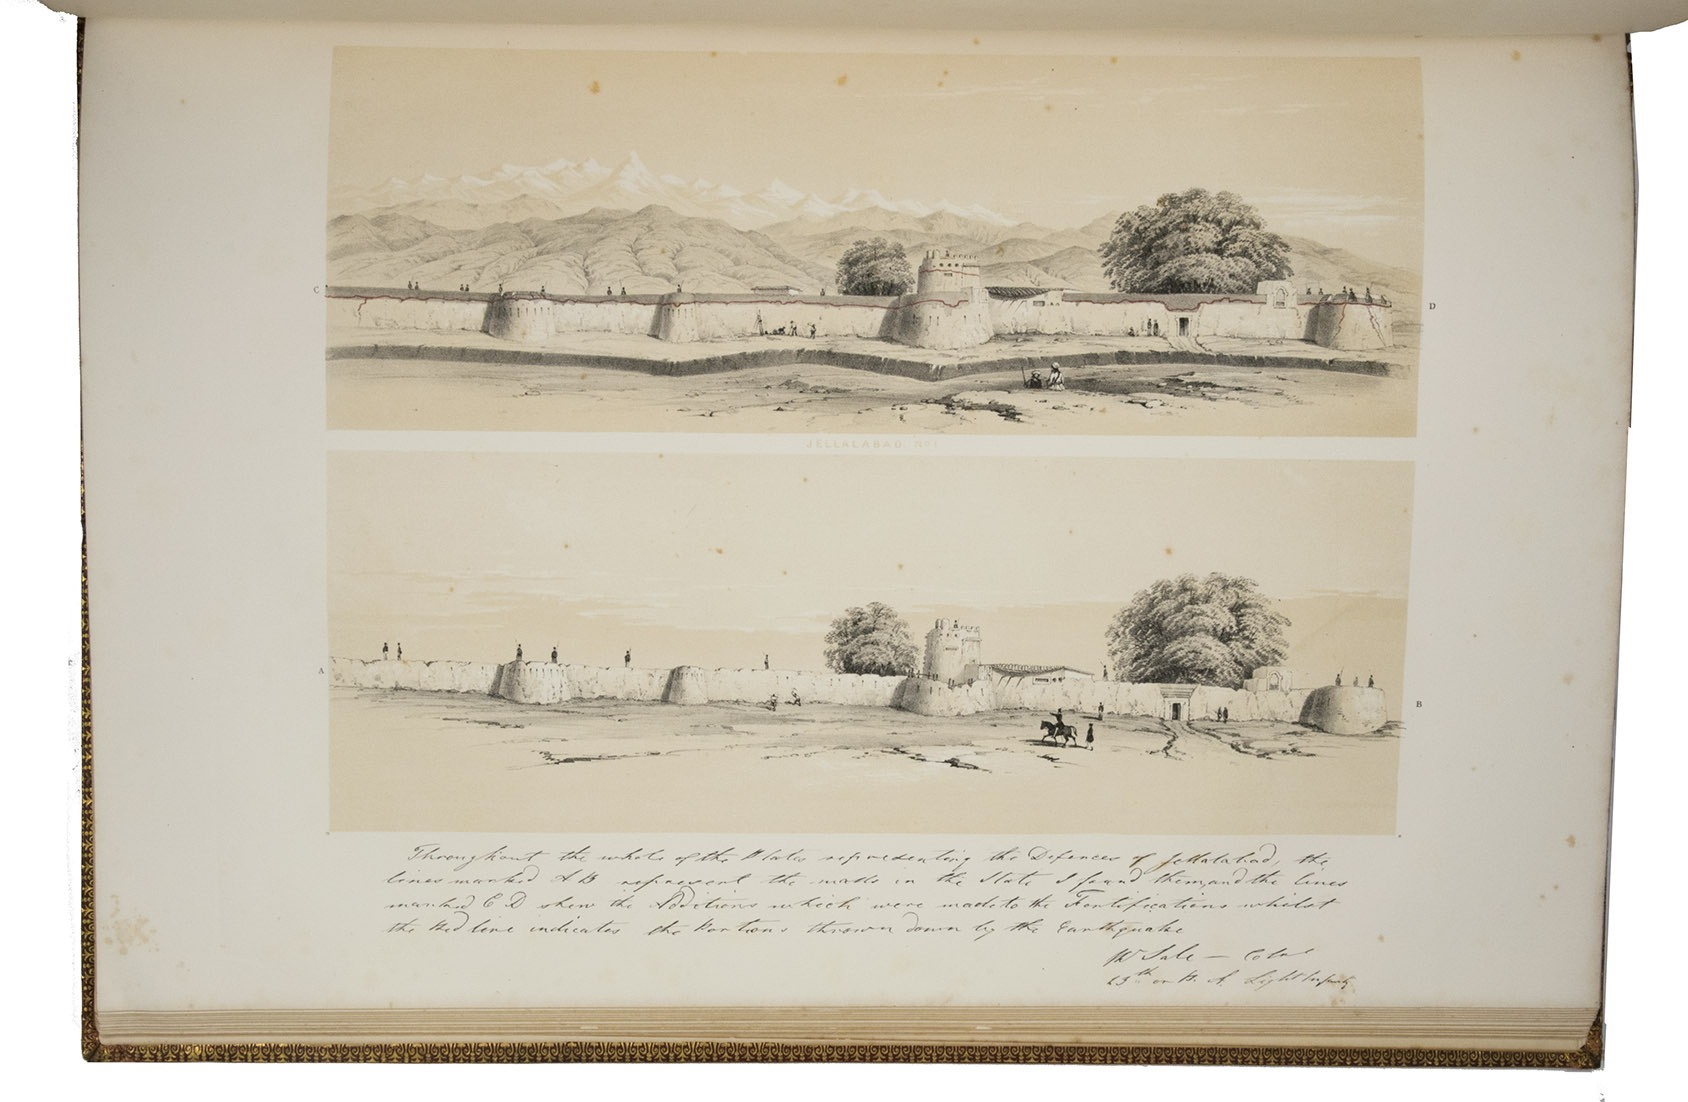 C
D
JELLALABAD. No 1
A
B
Throughout the whole of the Plates representing the Defences of Jellalabad, the
lines marked A B represent the walls in the State I found them, and the lines
marked C D shew the Additions which were made to the Fortifications whilst
the Red line indicates the Portions thrown down by the Earthquake
R Sale — Col
13th or P. A. Light Infantry